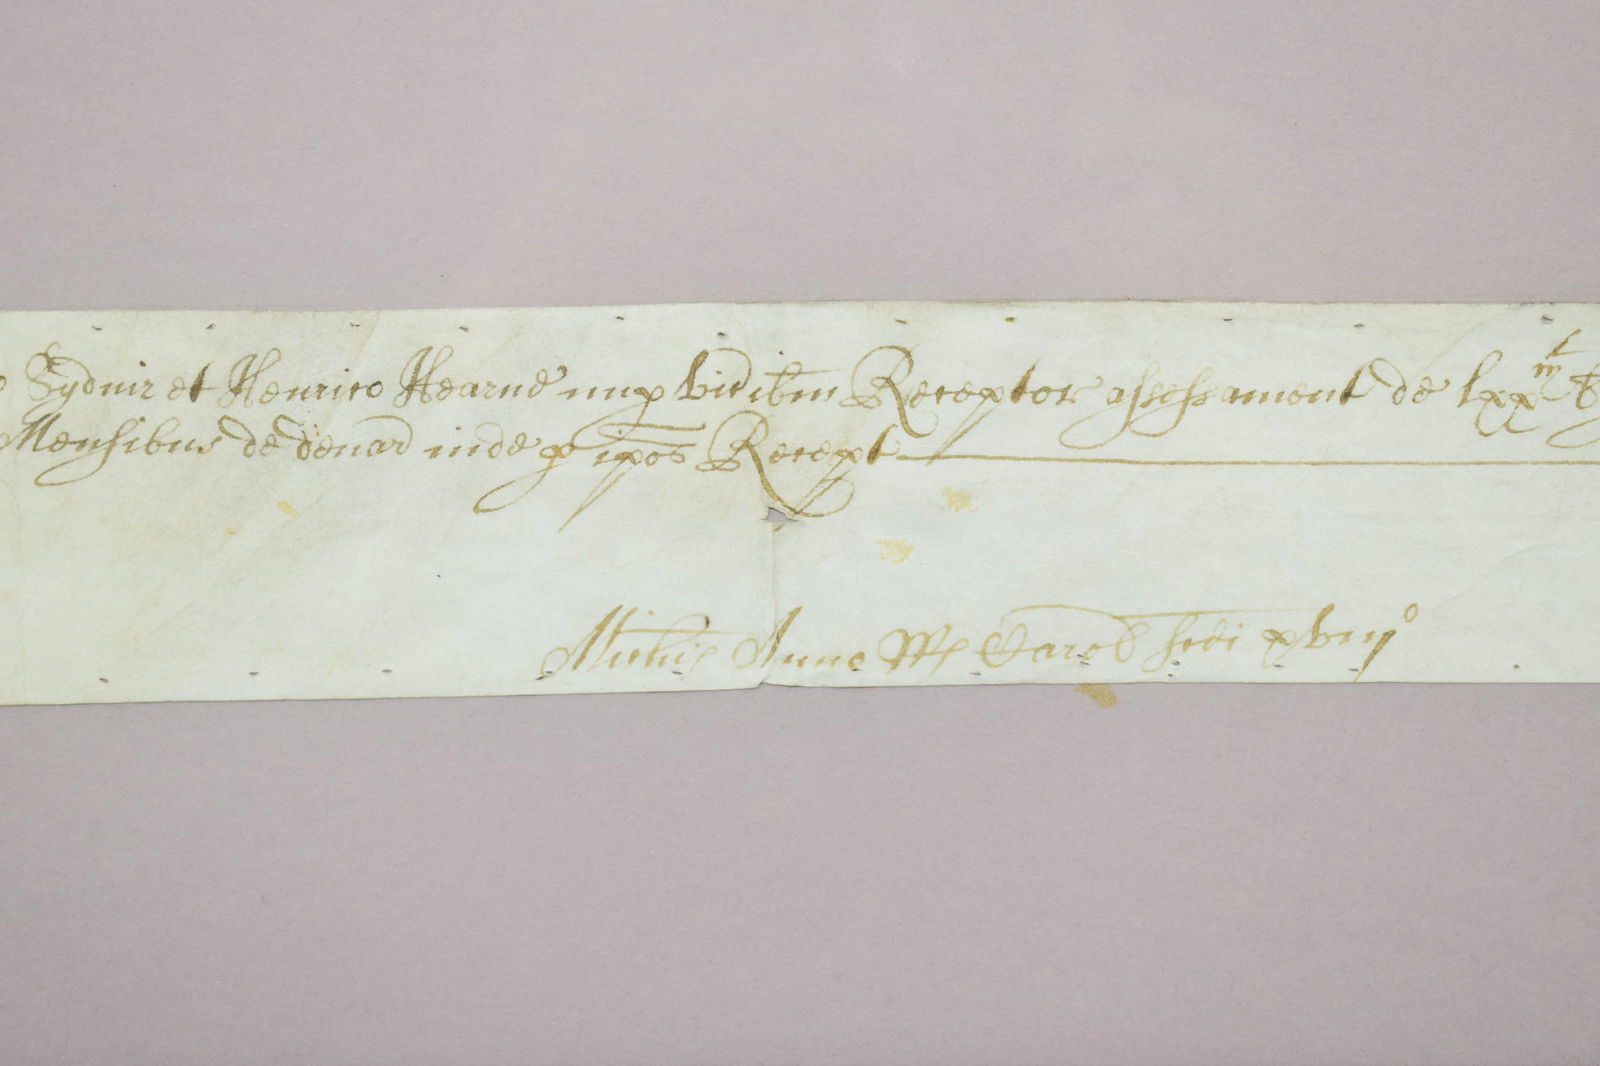 Sydnir et Henrico Hearne nup vic ibm Receptor assessament de lxx m
Mensibus de denar inde p ipos Recept
Michis Anno Rs Carol scdi xviijo